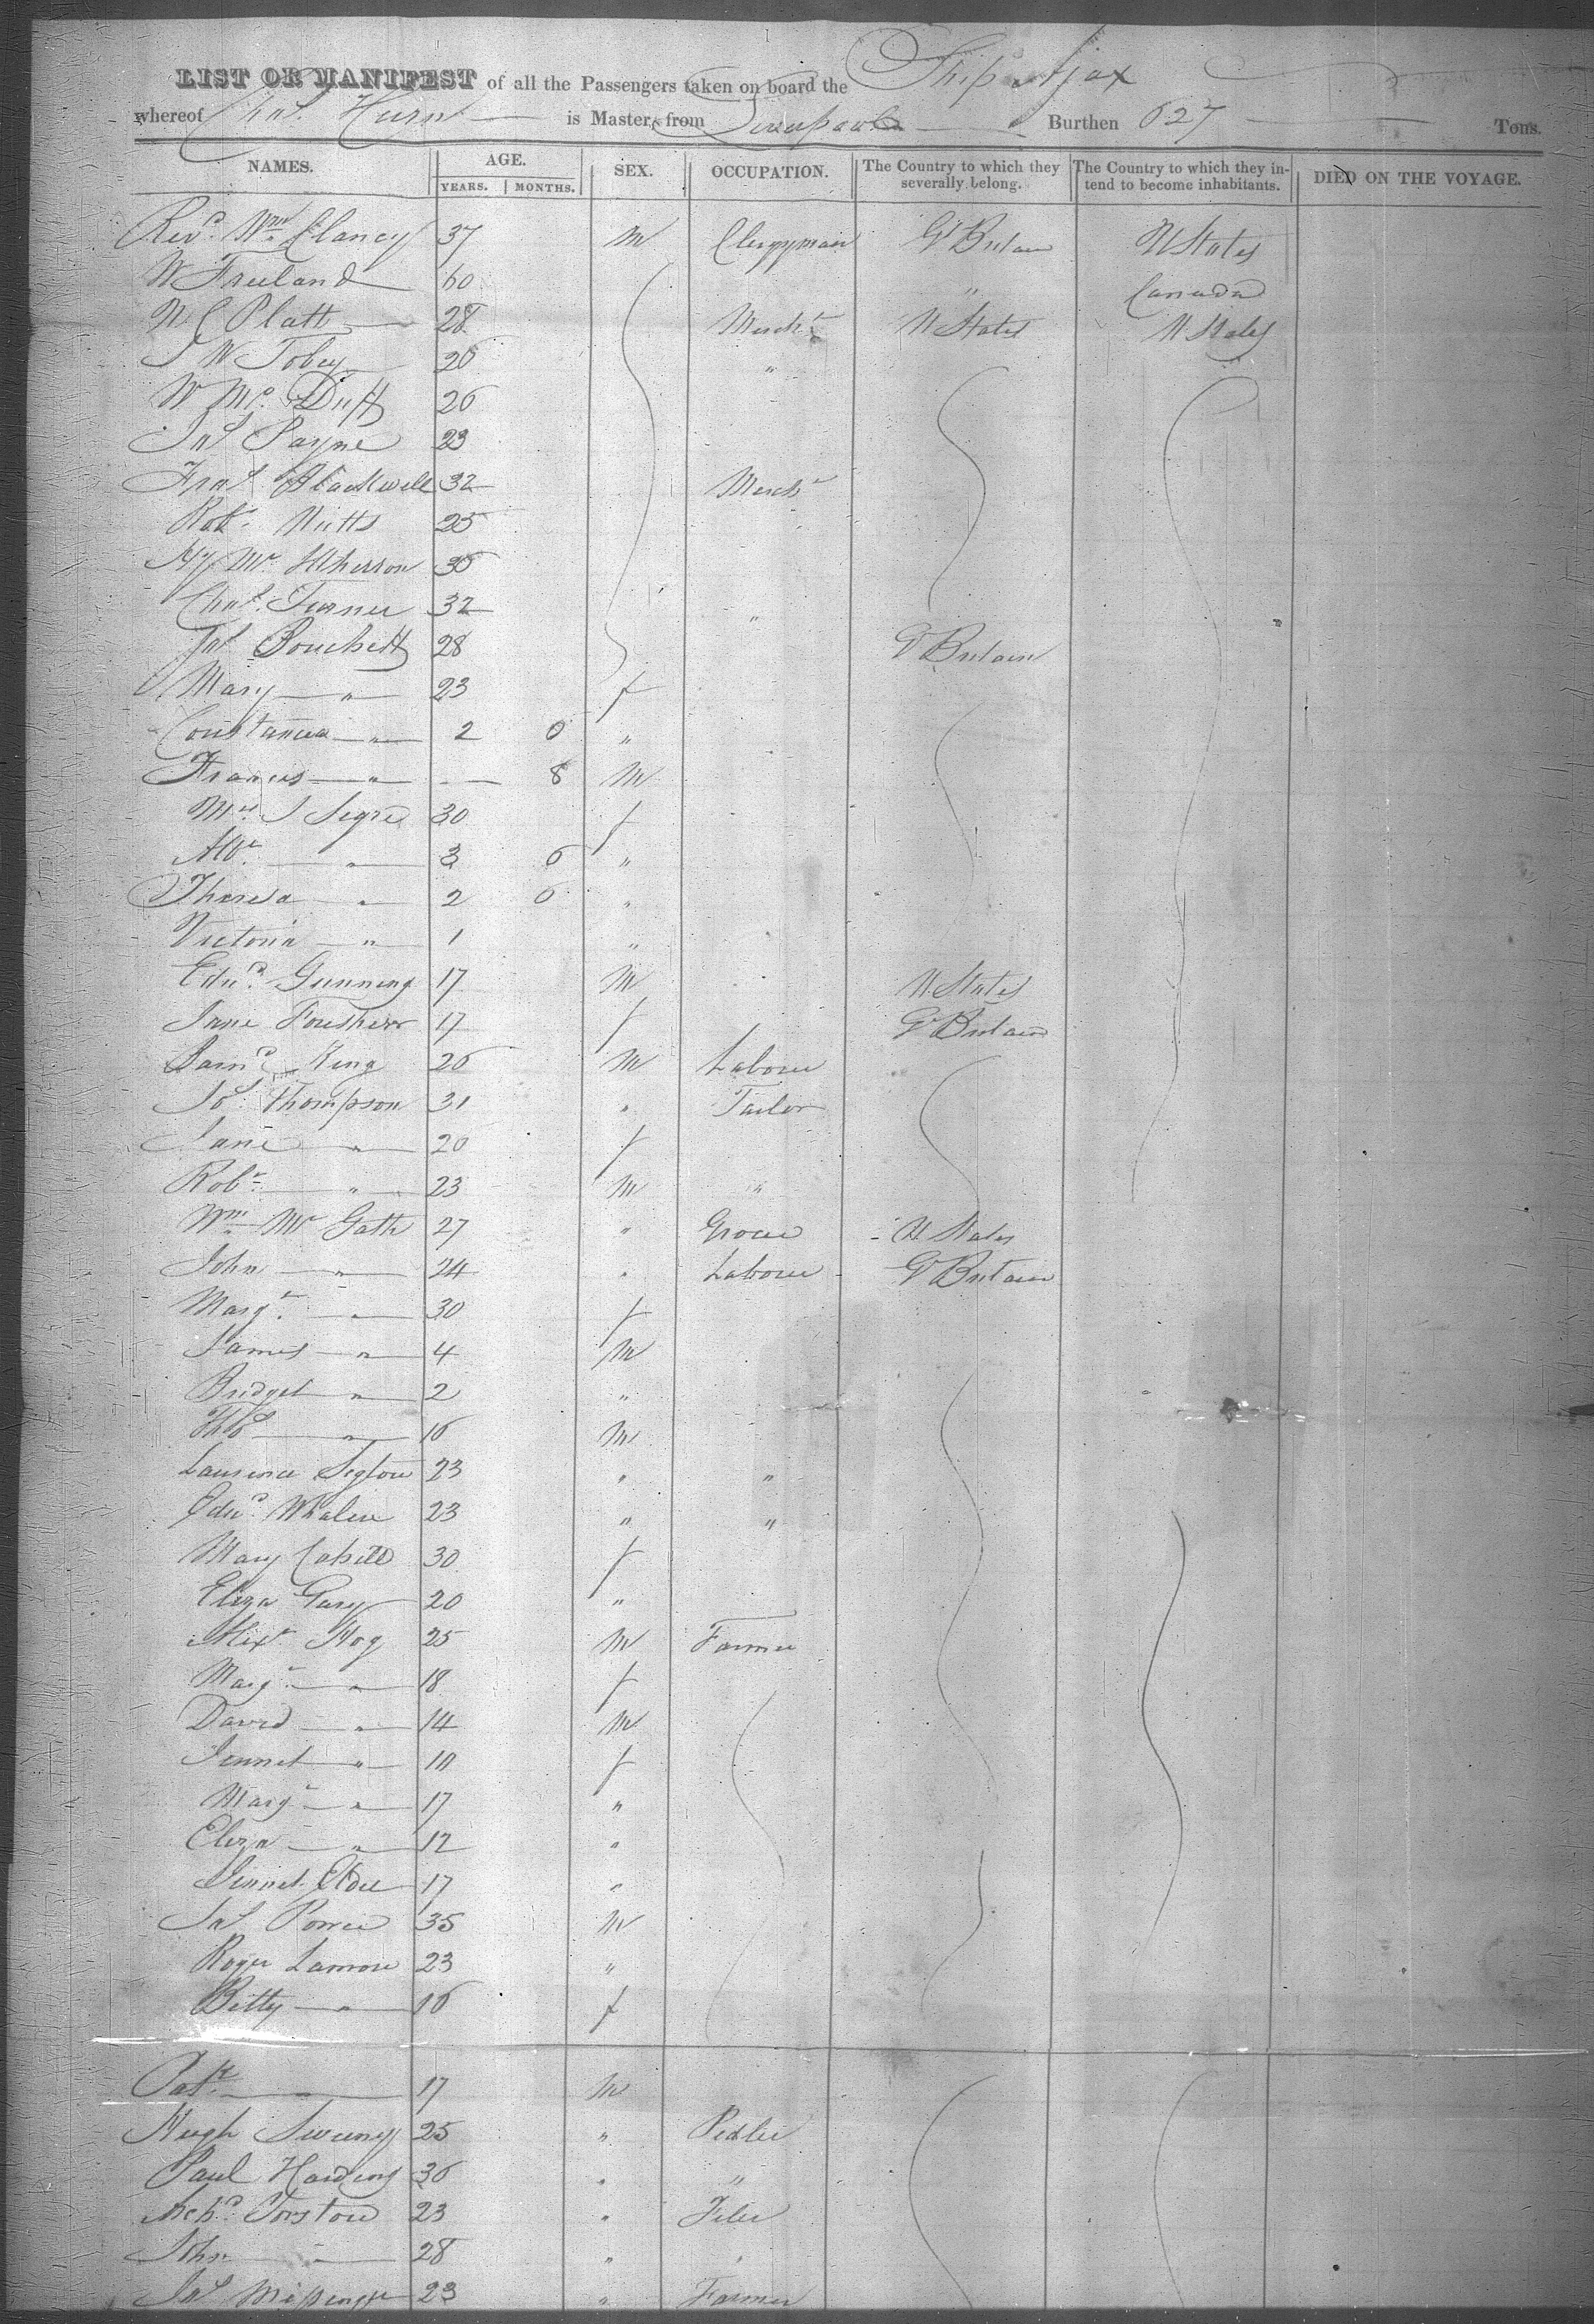 LIST OR MANIFEST of all the Passengers taken on board the Ship Ajax
whereof Chas. Hurn is Master, from Liverpool Burthen 627 Tons.
NAMES. AGE. SEX. OCCUPATION. The Country to which they severally belong. The Country to which they intend to become inhabitants. DIED ON THE VOYAGE.
YEARS. MONTHS.
Revd. Wm. Clancy 37 M Clergyman Gt Britain U States
W Freeland 60 " Canada
N C Platt 28 Mercht U States U States
S W Tobey 26 "
W Mc. Duff 26
Jas Payne 23
Fras Blackwell 32 Mercht
Robt. Nutts 25
Hy Mc 36
Chas. Turner 32 "
Jas Bouchett 28 Gt Britain
Mary " 23 f
Constancia " 2 0 "
Frances " — 8 M
Mrs. S Segre 30 f
Albt. " 3 6 "
Theresa " 2 6 "
Victoria " 1 "
Edwd. Gunning 17 M U States
Jane 17 f Gt Britain
Barnd. King 26 M Labourer
Jos. Thompson 31 " Tailor
Jane " 20 f
Robt. " 23 M "
Wm Mc Gath 27 " Grocer U States
John " 24 " Labourer Gt Britain
Margt. " 30 f
James " 4 M
Bridget " 2 "
Thos " 16 M
Laurence 23 " "
Edwd. Whalen 23 " "
Mary Cahill 30 f
Eliza Gary 20 "
Alexr. Hog 25 M Farmer
Margt. " 18 f
David " 14 M
Jennet " 10 f
Margt " 17 "
Eliza " 12 "
Jennet Elder 17 "
Jas Power 35 M
Roger Lamore 23 "
Betty " 16 f
Patk. " 17 M
Hugh Sweeney 25 " Pedler
Paul Harding 36 " "
Archd. 23 "
John " 28 " "
Jas Missenger 23 " Farmer